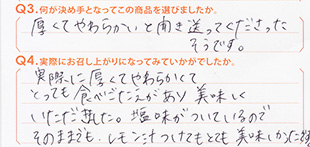 Q3.何が決め手となってこの商品を選びましたか。
厚くてやわらかいと聞き送ってくださった
そうです。
Q4.実際にお召し上がりになってみていかがでしたか。
実際に厚くてやわらかくて
とっても食べごたえがあり美味しく
いただきました。塩味がついているので
そのままでも、レモン汁つけてもとても美味しかったです